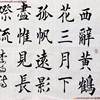 西辭黃鶴
花三月下
孤帆遠影
盡惟見長
際流